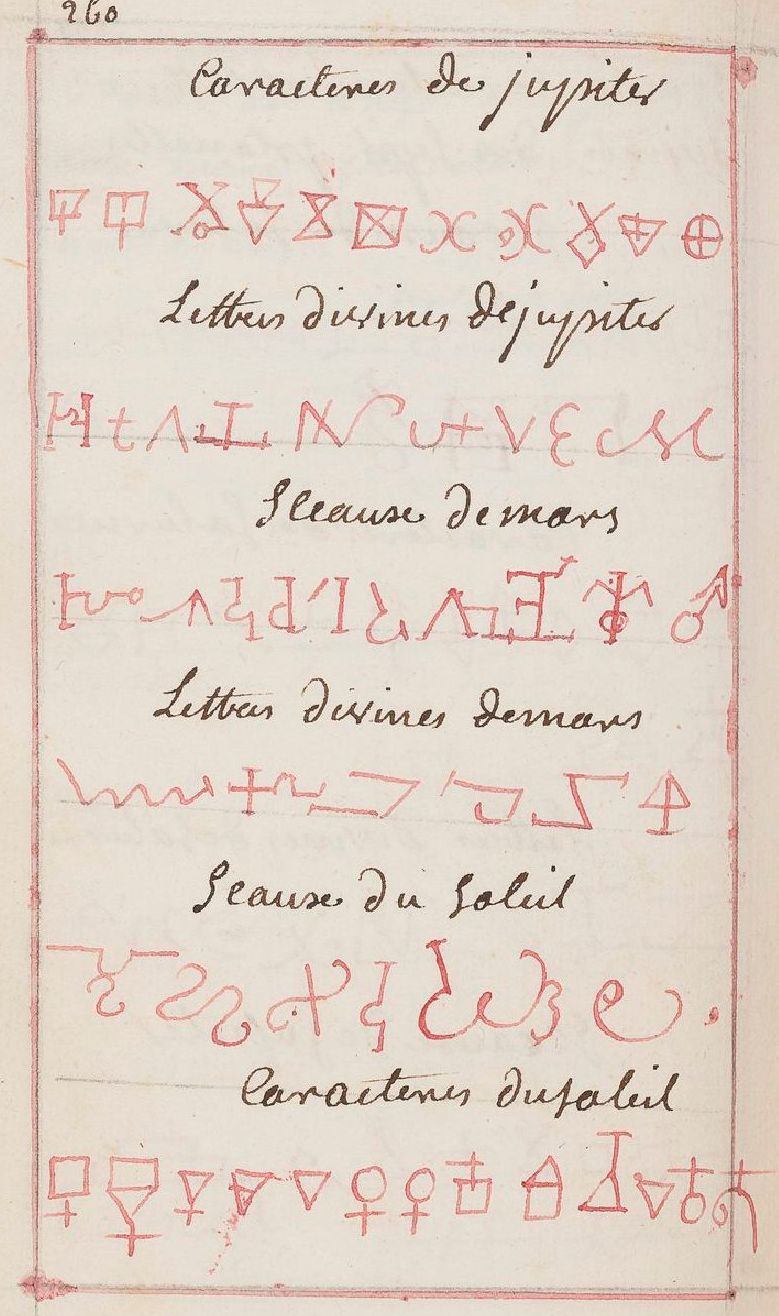 260
Caracteres de jupiter
Lettres divines de jupiter
Sceaux de mars
Lettres divines de mars
Seaux du Soleil
Caracteres du soleil